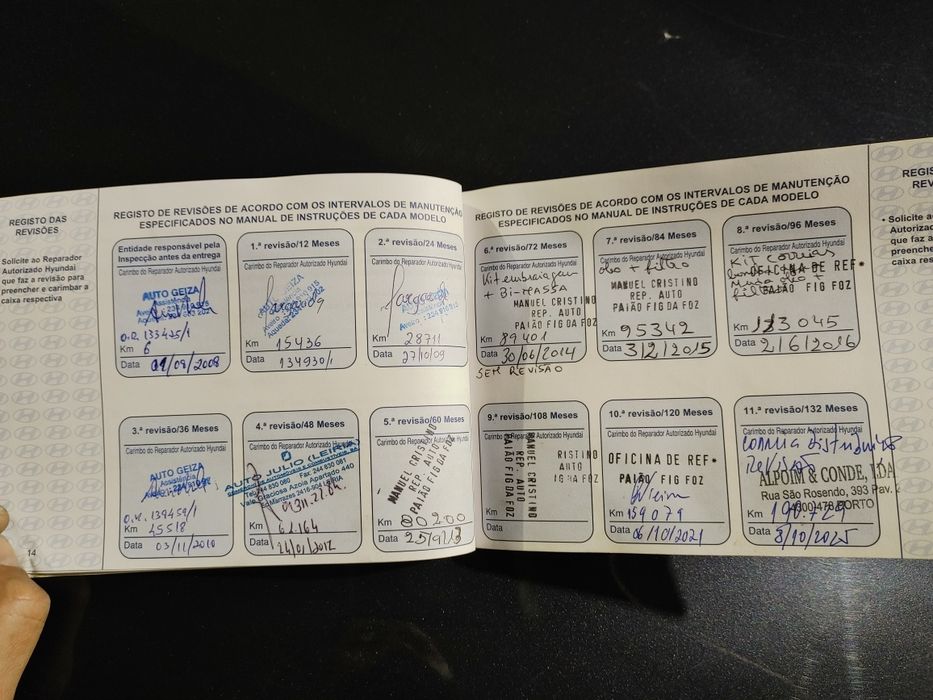 REGISTO DAS
REVISÕES
Solicite ao Reparador
Autorizado Hyundai
que faz a revisão para
preencher e carimbar a
caixa respectiva
14
REGISTO DE REVISÕES DE ACORDO COM OS INTERVALOS DE MANUTENÇÃO
ESPECIFICADOS NO MANUAL DE INSTRUÇÕES DE CADA MODELO
Entidade responsável pela
Inspecção antes da entrega
Carimbo do Reparador Autorizado Hyundai
AUTO GEIZA
Assistência
O.R. 133425/1
Km 6
Data 01/08/2008
1.ª revisão/12 Meses
Carimbo do Reparador Autorizado Hyundai
Km 15436
Data 134930/1
2.ª revisão/24 Meses
Carimbo do Reparador Autorizado Hyundai
Km 28711
Data 27/10/09
3.ª revisão/36 Meses
Carimbo do Reparador Autorizado Hyundai
AUTO GEIZA
Assistência
Km 45518
Data 03/11/2010
4.ª revisão/48 Meses
Carimbo do Reparador Autorizado Hyundai
AUTO JÚLIO (LEIRIA)
Vale Graciosa Azoia Apartado 440
Km 62.164
Data 24/01/2012
5.ª revisão/60 Meses
Carimbo do Reparador Autorizado Hyundai
MANUEL CRISTINO
REP. AUTO
PAIÃO FIG DA FOZ
Km
Data
REGISTO DE REVISÕES DE ACORDO COM OS INTERVALOS DE MANUTENÇÃO
ESPECIFICADOS NO MANUAL DE INSTRUÇÕES DE CADA MODELO
6.ª revisão/72 Meses
Carimbo do Reparador Autorizado Hyundai
Kit embraiagem
+ Bi-MASSA
MANUEL CRISTINO
REP. AUTO
PAIÃO FIG DA FOZ
Km 89401
Data 30/06/2014
SEM REVISÃO
7.ª revisão/84 Meses
Carimbo do Reparador Autorizado Hyundai
oleo + filtro
MANUEL CRISTINO
REP. AUTO
PAIÃO FIG DA FOZ
Km 95342
Data 3/2/2015
8.ª revisão/96 Meses
Carimbo do Reparador Autorizado Hyundai
Kit correias
OFICINA DE REP.
PAIÃO FIG FOZ
Km 113045
Data 2/6/2016
9.ª revisão/108 Meses
Carimbo do Reparador Autorizado Hyundai
MANUEL CRISTINO
REP. AUTO
PAIÃO FIG DA FOZ
RISTINO
AUTO
IG DA FOZ
Km
Data
10.ª revisão/120 Meses
Carimbo do Reparador Autorizado Hyundai
OFICINA DE REP.
PAIÃO FIG FOZ
Km 159079
Data 06/10/2021
11.ª revisão/132 Meses
Carimbo do Reparador Autorizado Hyundai
ALPOIM & CONDE, LDA
Rua São Rosendo, 393 Pav.
4300-478 PORTO
Km 190.729
Data 8/10/2025
REGIS
REV
• Solicite ao
Autorizad
que faz a
preenche
caixa res